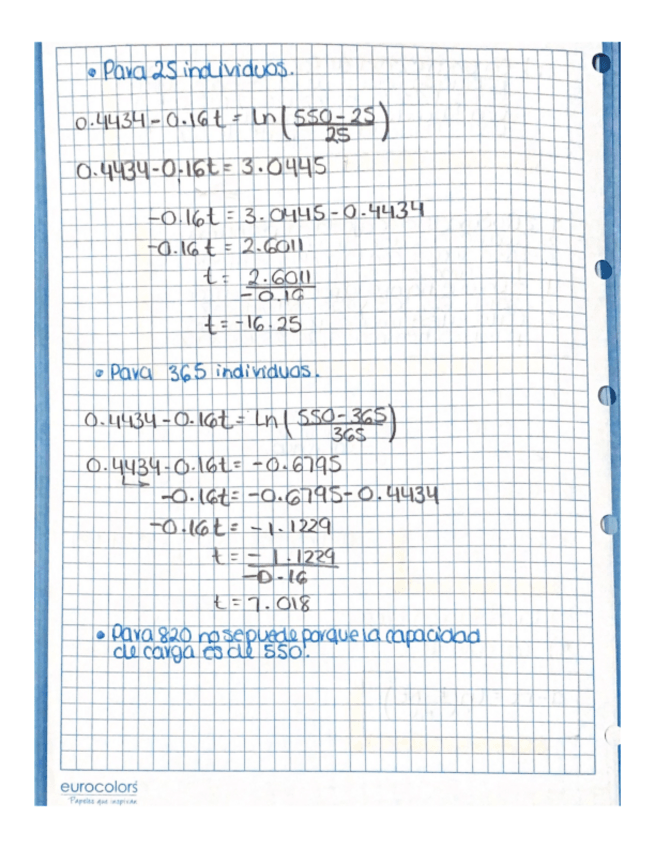 • Para 25 individuos.
0.4434-0.16t = Ln(550-25/25)
0.4434-0.16t = 3.0445
-0.16t = 3.0445-0.4434
-0.16t = 2.6011
t = 2.6011/-0.16
t = -16.25
• Para 365 individuos.
0.4434-0.16t = Ln(550-365/365)
0.4434-0.16t = -0.6795
-0.16t = -0.6795-0.4434
-0.16t = -1.1229
t = -1.1229/-0.16
t = 7.018
• Para 820 no se puede porque la capacidad
de carga es de 550.
eurocolors
Papeles que inspiran